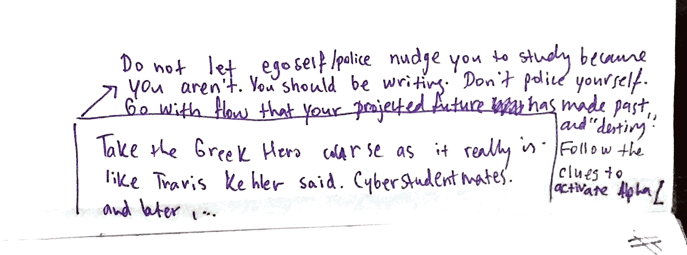 Do not let egoself/police nudge you to study because
you aren't. You should be writing. Don't police yourself.
Go with flow that your projected future has made past
and "destiny".
Follow the
clues to
activate Alpha
Take the Greek Hero course as it really is.
like Travis Kehler said. Cyberstudentmates.
and later, ...